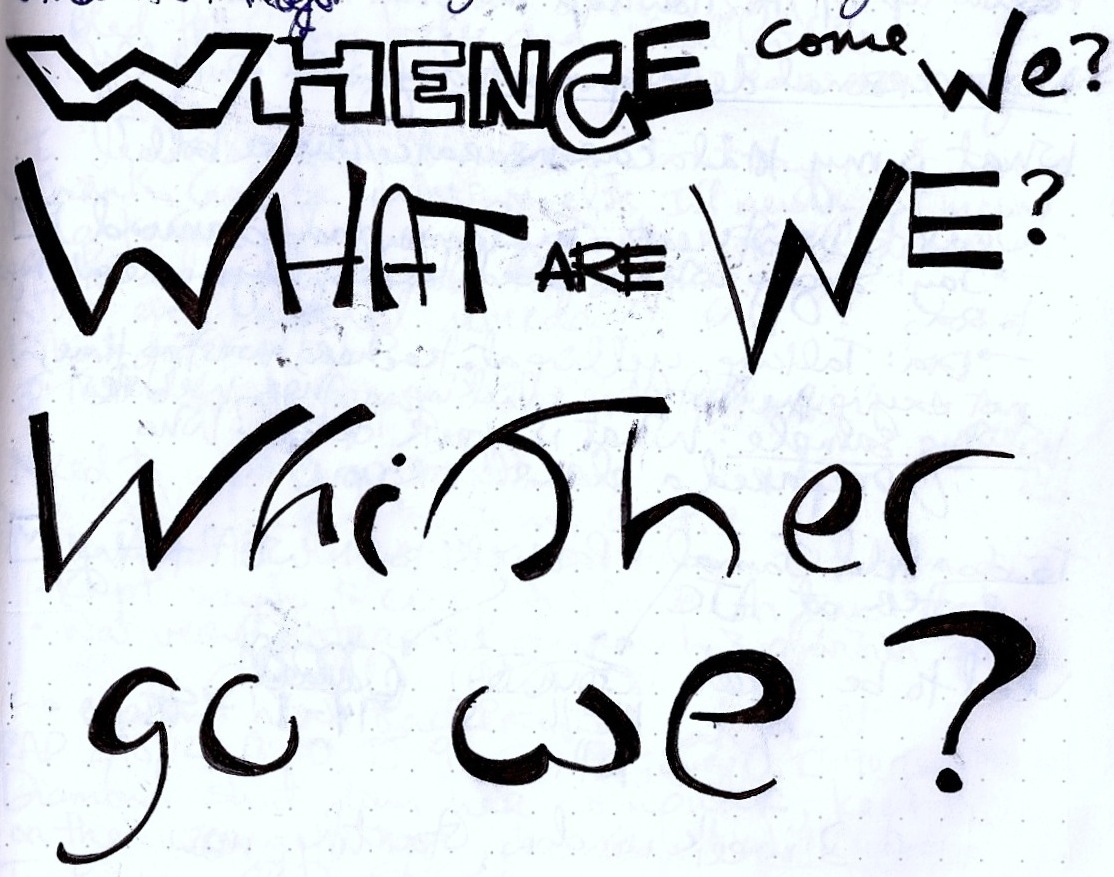 WHENCE come We?
WHAT ARE WE?
Whither
go we?